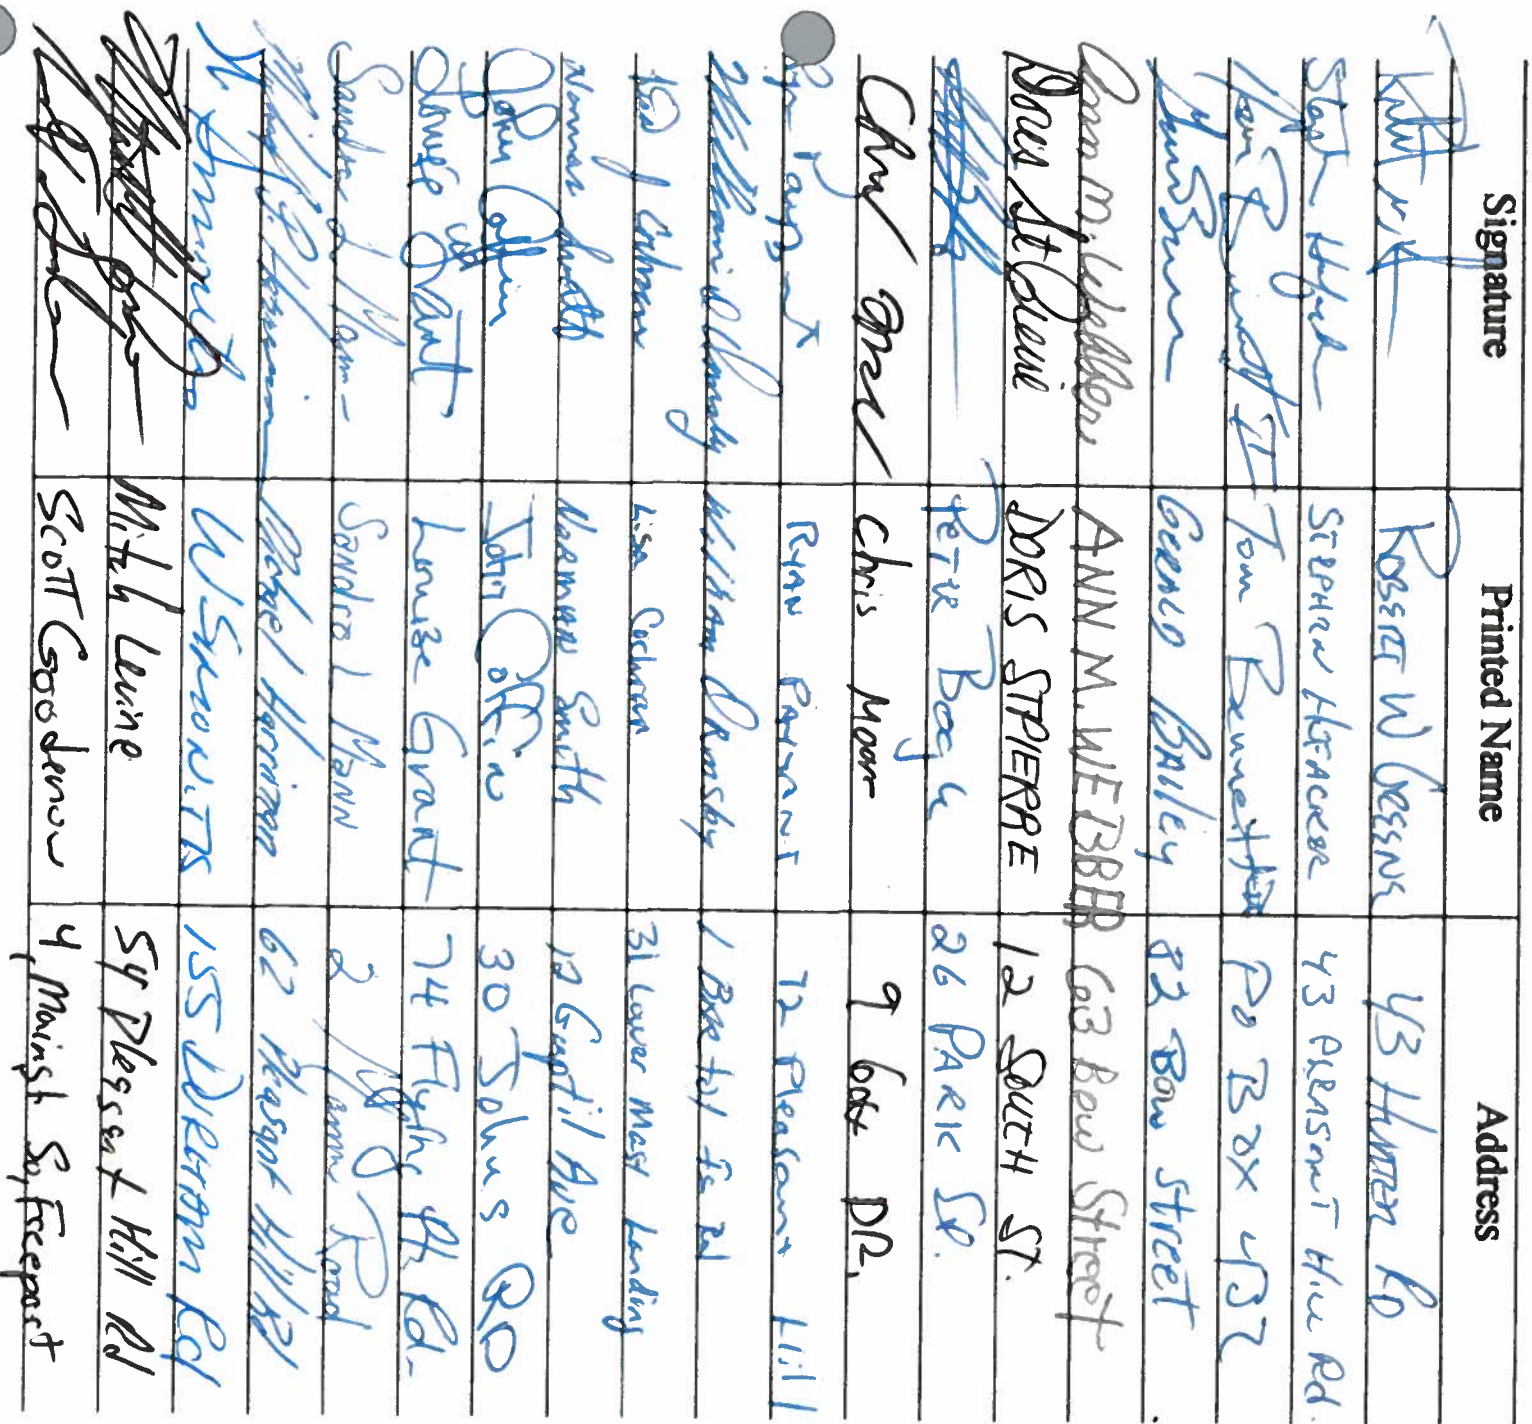 Signature Printed Name Address
ROBERT W 43 HUNTER RD
STEPHEN HEFACKER 43 PLEASANT HILL Rd.
Tom Bennett II Tom Bennett PO BOX 432
GERALD BAILEY 82 Bow Street
Ann M. Webber ANN M. WEBBER 63 Bow Street
Doris St Pierre DORIS ST PIERRE 12 SOUTH ST.
Peter 26 PARK St.
Chris Moar 9 DR.
Ryan Payant RYAN PAYANT 72 Pleasant Hill
William Ormsby William Ormsby 1 Rd
Lisa Cochran Lisa Cochran 31 Lower Mast Landing
Norman Smith NORMAN Smith 12 Guptil Ave
John Coffin John Coffin 30 Johns RD
Louise Grant Louise Grant 74 Flying Pt. Rd.
Sandra L Mann Sandra L MANN 2 Mann Road
Michael Horniman 62 Pleasant Hill Rd
W SIMONITIS 155 DURHAM Rd
Mitch Levine 54 Pleasant Hill Rd
Scott Goodenow 4, Main St So, Freeport